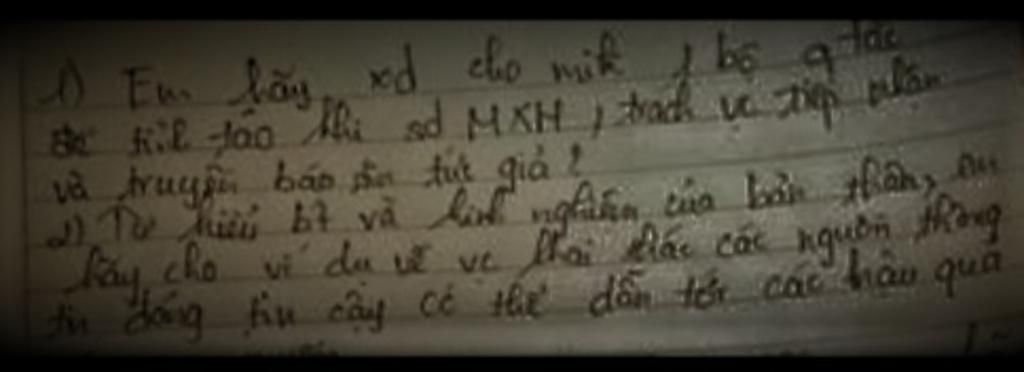 1) Em hãy xd cho mik 1 bộ q tắc
để tỉnh táo khi sd MXH, tránh vc tiếp nhận
và truyền bá tin tức giả?
2) Từ hiểu bt và kinh nghiệm của bản thân, em
hãy cho ví dụ về vc khai thác các nguồn thông
tin đáng tin cậy có thể dẫn tới các hậu quả